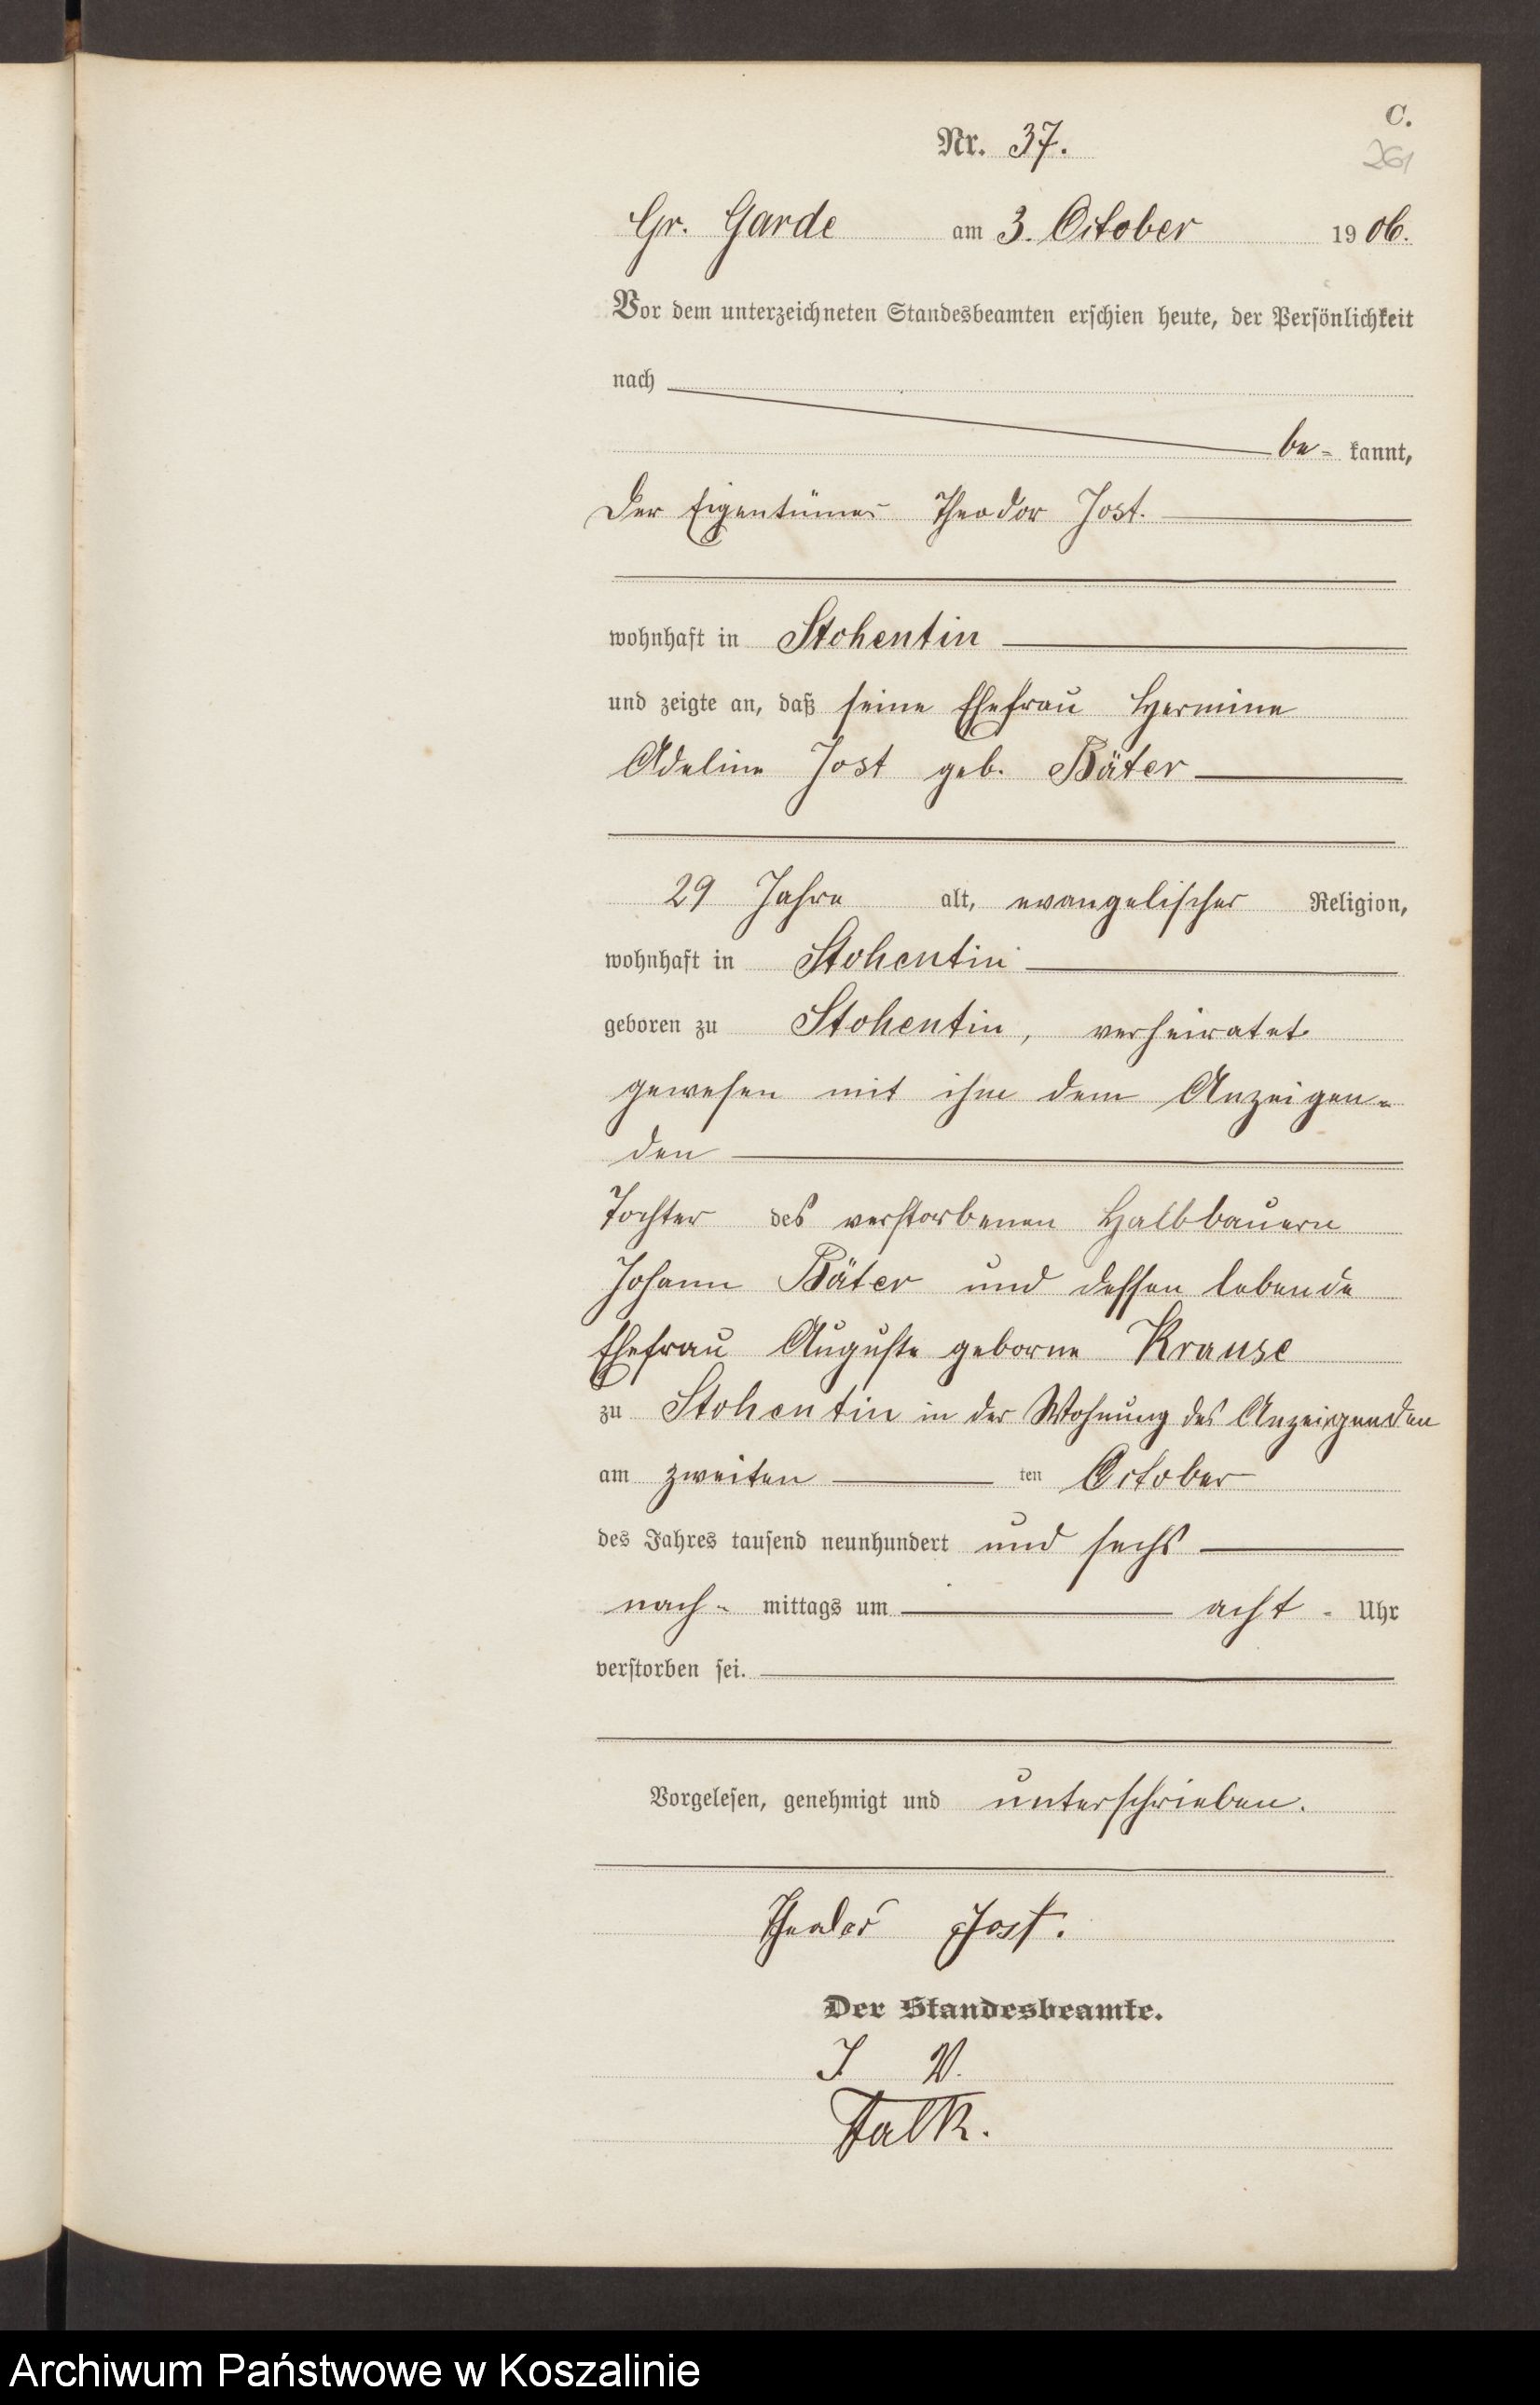 C.
Nr. 37.
261
Gr. Garde am 3. October 1906.
Vor dem unterzeichneten Standesbeamten erschien heute, der Persönlichkeit
nach
be= kannt,
Der Eigentümer Theodor Jost.
wohnhaft in Stohentin
und zeigte an, daß seine Ehefrau Hermine
Adeline Jost geb. Bäter
29 Jahre alt, evangelischer Religion,
wohnhaft in Stohentin
geboren zu Stohentin, verheiratet
gewesen mit ihm dem Anzeigen=
den
Tochter des verstorbenen Halbbauern
Johann Bäter und dessen lebende
Ehefrau Auguste geborne Krause
zu Stohentin in der Wohnung des Anzeigenden
am zweiten ten October
des Jahres tausend neunhundert und sechs
nach= mittags um acht = Uhr
verstorben sei.
Vorgelesen, genehmigt und unterschrieben.
Theodor Jost.
Der Standesbeamte.
J. V.
Falk.
Archiwum Państwowe w Koszalinie